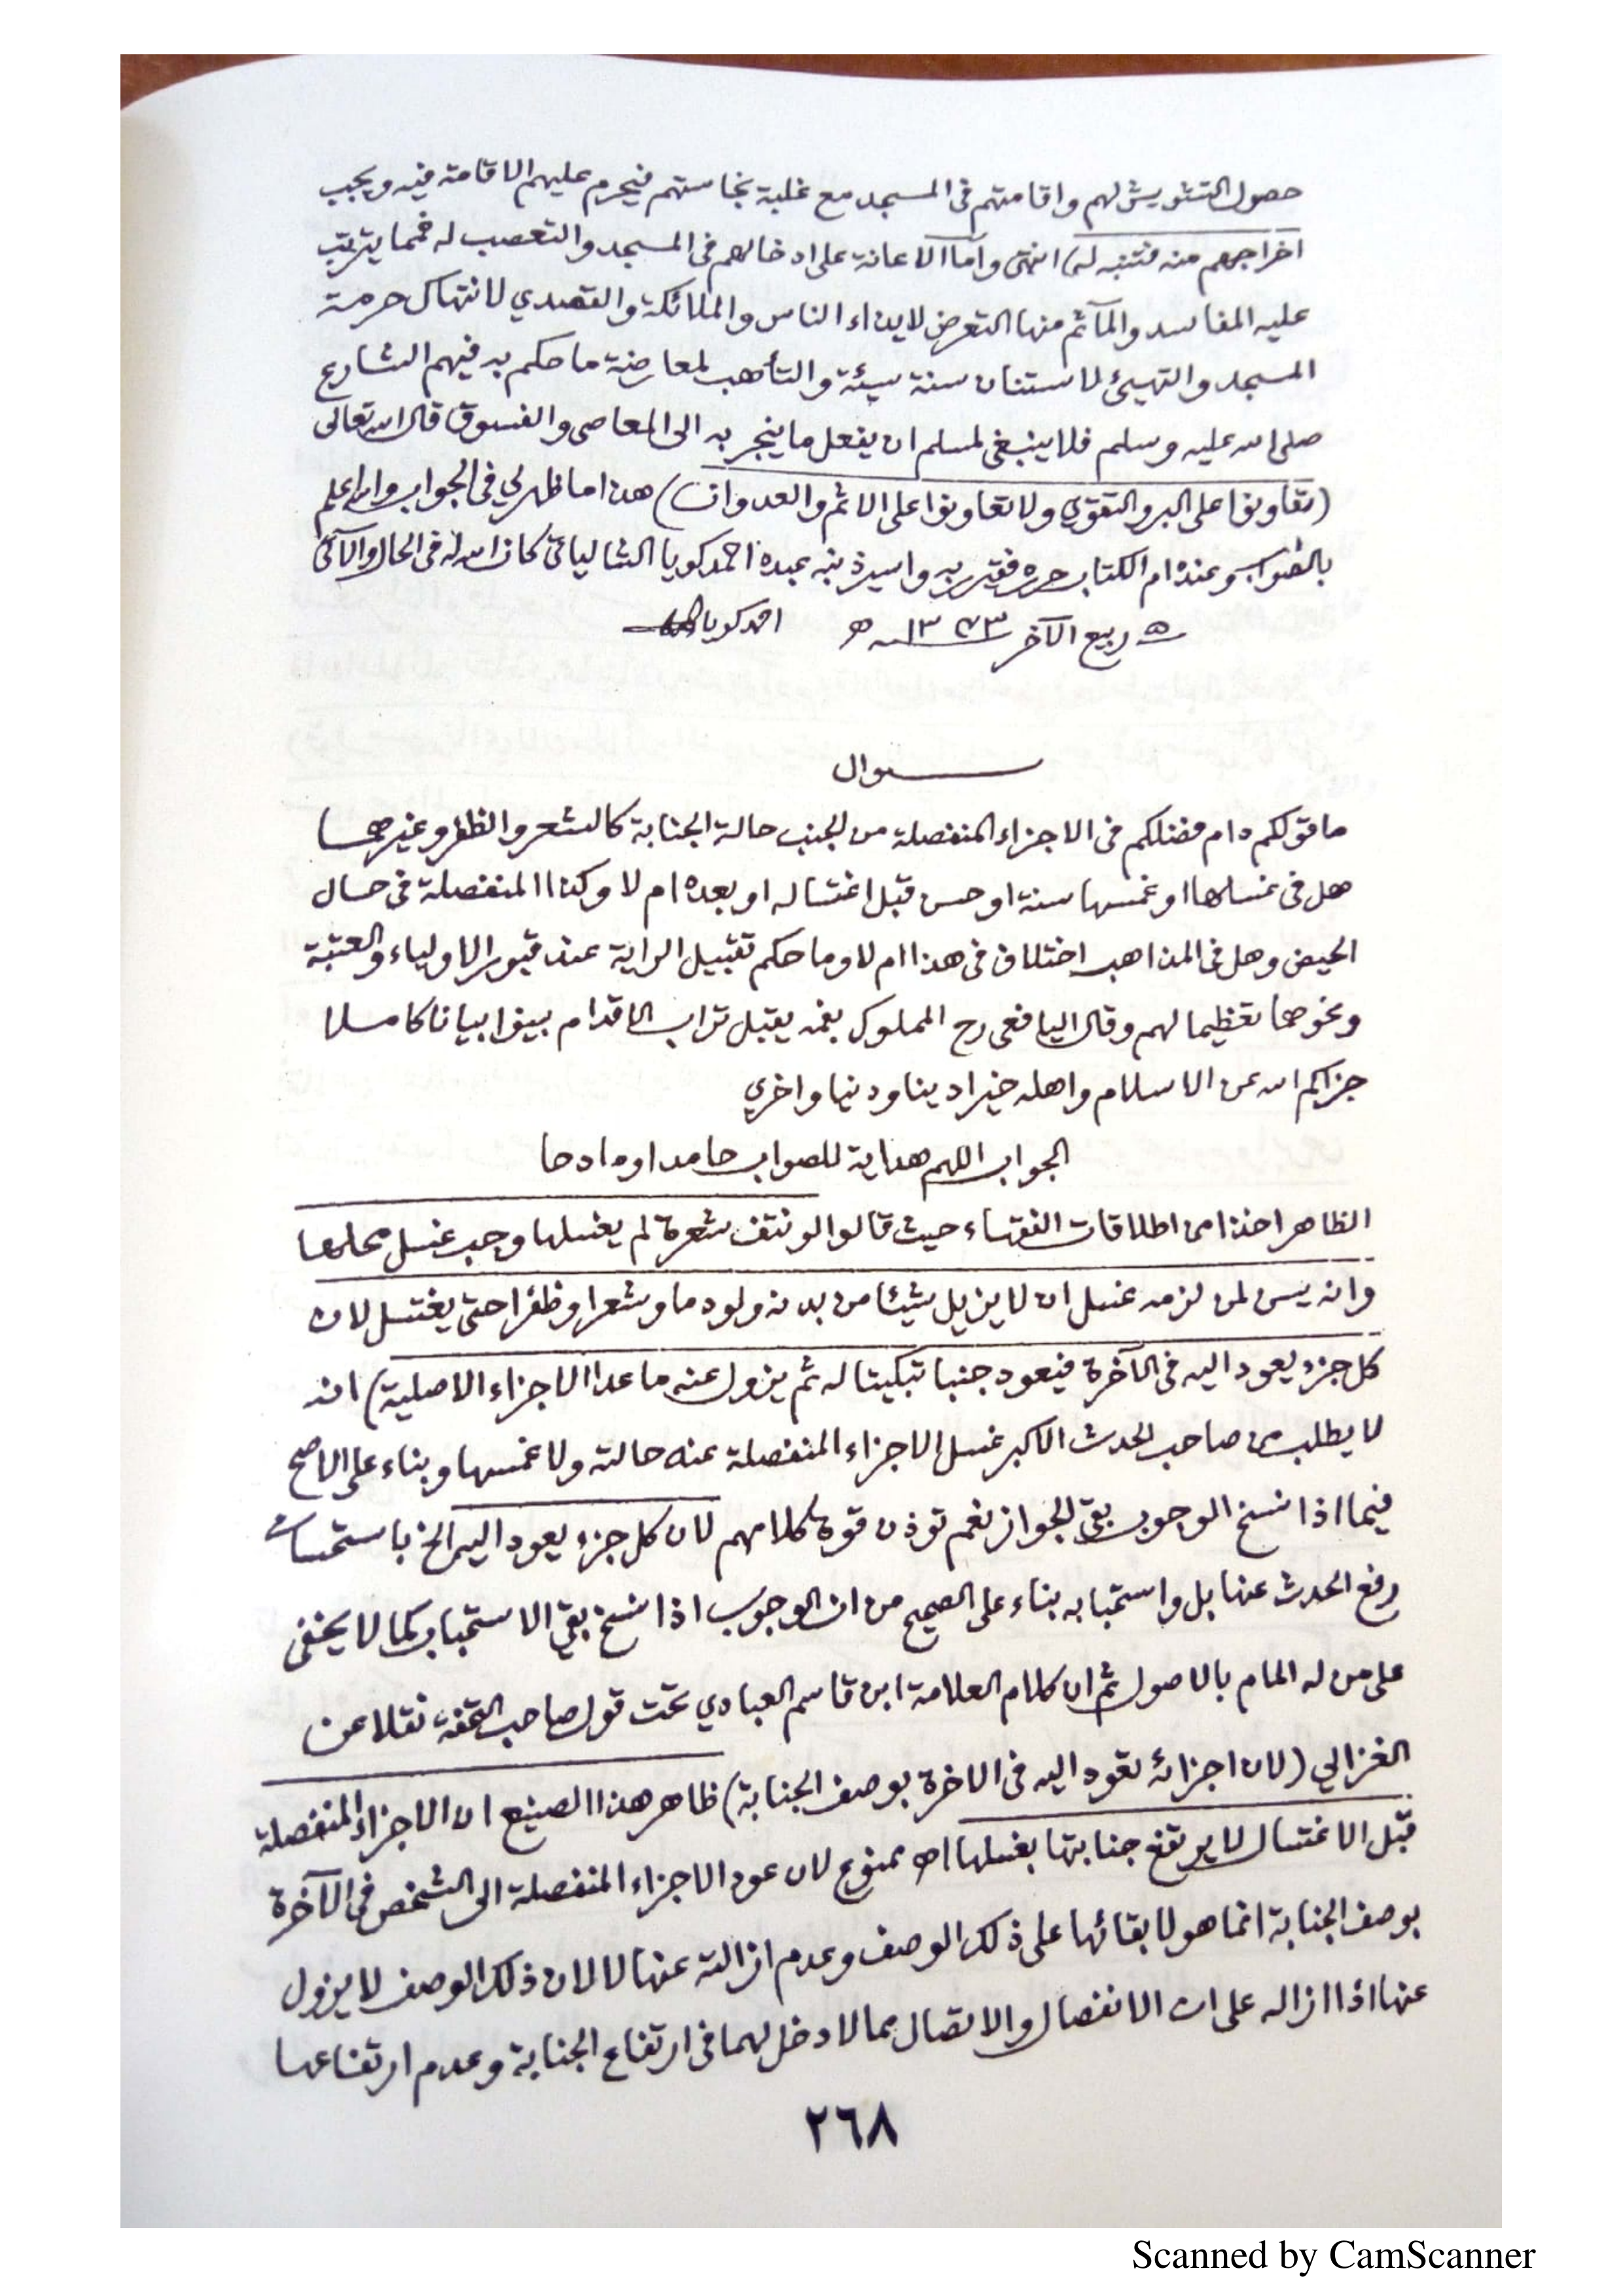 حصول التشويش لهم واقامتهم فى المسجد مع غلبة نجاستهم فيحرم عليهم الاقامة فيه ويجب
اخراجهم منه فتنبه له) انتهى واما الاعانة على ادخالهم فى المسجد والتعصب له فمما يترتب
عليه المفاسد والمآثم منها التعرض لايذاء الناس والملائكة والتصدي لانتهاك حرمة
المسجد والتهيئ لاستنان سنة سيئة والتأهب لمعارضة ما حكم به فيهم الشارع
صلى الله عليه وسلم فلا ينبغى لمسلم ان يفعل ما ينجر به الى المعاصى والفسوق قال الله تعالى
(تعاونوا على البر والتقوى ولا تعاونوا على الاثم والعدوان) هذا ما ظهر لي فى الجواب والله اعلم
بالصواب وعنده ام الكتاب حرره فقير ربه واسير ذنبه عبده احمد كويا الشالياتى كان الله له فى الحال والآتى
٥ ربيع الآخر ١٣٧٣ ھ احمد كويا
سوال
ما قولكم دام فضلكم فى الاجزاء المنفصلة من الجنب حالة الجنابة كالشعر والظفر وغيرهما
هل فى غسلها او غمسها سنة او حسن قبل اغتساله او بعده ام لا وكذا المنفصلة فى حال
الحيض وهل فى المذاهب اختلاف فى هذا ام لا وما حكم تقبيل الراية عند قبور الاولياء والعتبة
ونحوهما تعظيما لهم وقال اليافعى رح المملوك بفمه يقبل تراب الاقدام بينوا بيانا كاملا
جزاكم الله عن الاسلام واهله خيرا دينا ودنيا واخرى
الجواب اللهم هداية للصواب حامدا ومادحا
الظاهر اخذا من اطلاقات الفقهاء حيث قالوا لو نتف شعرة لم يغسلها وجب غسل محلها
وانه يسن لمن لزمه غسل ان لا يزيل شيئا من بدنه ولو دما وشعرا وظفرا حتى يغتسل لان
كل جزء يعود اليه فى الآخرة فيعود جنبا تبكيتا له ثم يزول عنه ما عدا الاجزاء الاصلية) انه
لا يطلب من صاحب الحدث الاكبر غسل الاجزاء المنفصلة عنه حالته ولا غمسها وبناء على الاصح
فيما اذا نسخ الوجوب بقى الجواز نعم توذن قوة كلامهم لان كل جزء يعود اليه الخ باستحسان
رفع الحدث عنها بل واستحبابه بناء على الصحيح من ان الوجوب اذا نسخ بقى الاستحباب كما لا يخفى
على من له المام بالاصول ثم ان كلام العلامة ابن قاسم العبادي تحت قول صاحب التحفة نقلا عن
الغزالي (لان اجزائه تعود اليه فى الاخرة بوصف الجنابة) ظاهر هذا الصنيع ان الاجزاء المنفصلة
قبل الاغتسال لا يرتفع جنابتها بغسلها اھ ممنوع لان عود الاجزاء المنفصلة الى الشخص فى الآخرة
بوصف الجنابة انما هو لابقائها على ذلك الوصف وعدم ازالته عنها لا لان ذلك الوصف لا يزول
عنها اذا ازاله على ان الانفصال والاتصال مما لا دخل لهما فى ارتفاع الجنابة وعدم ارتفاعها
٢٦٨
Scanned by CamScanner